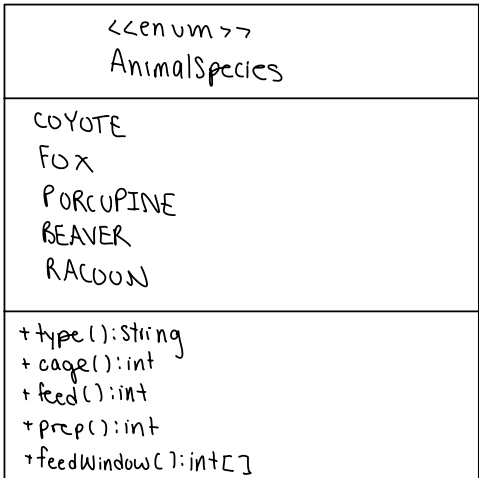 <<enum>>
AnimalSpecies
COYOTE
FOX
PORCUPINE
BEAVER
RACOON
+type():String
+cage():int
+feed():int
+prep():int
+feedWindow():int[]